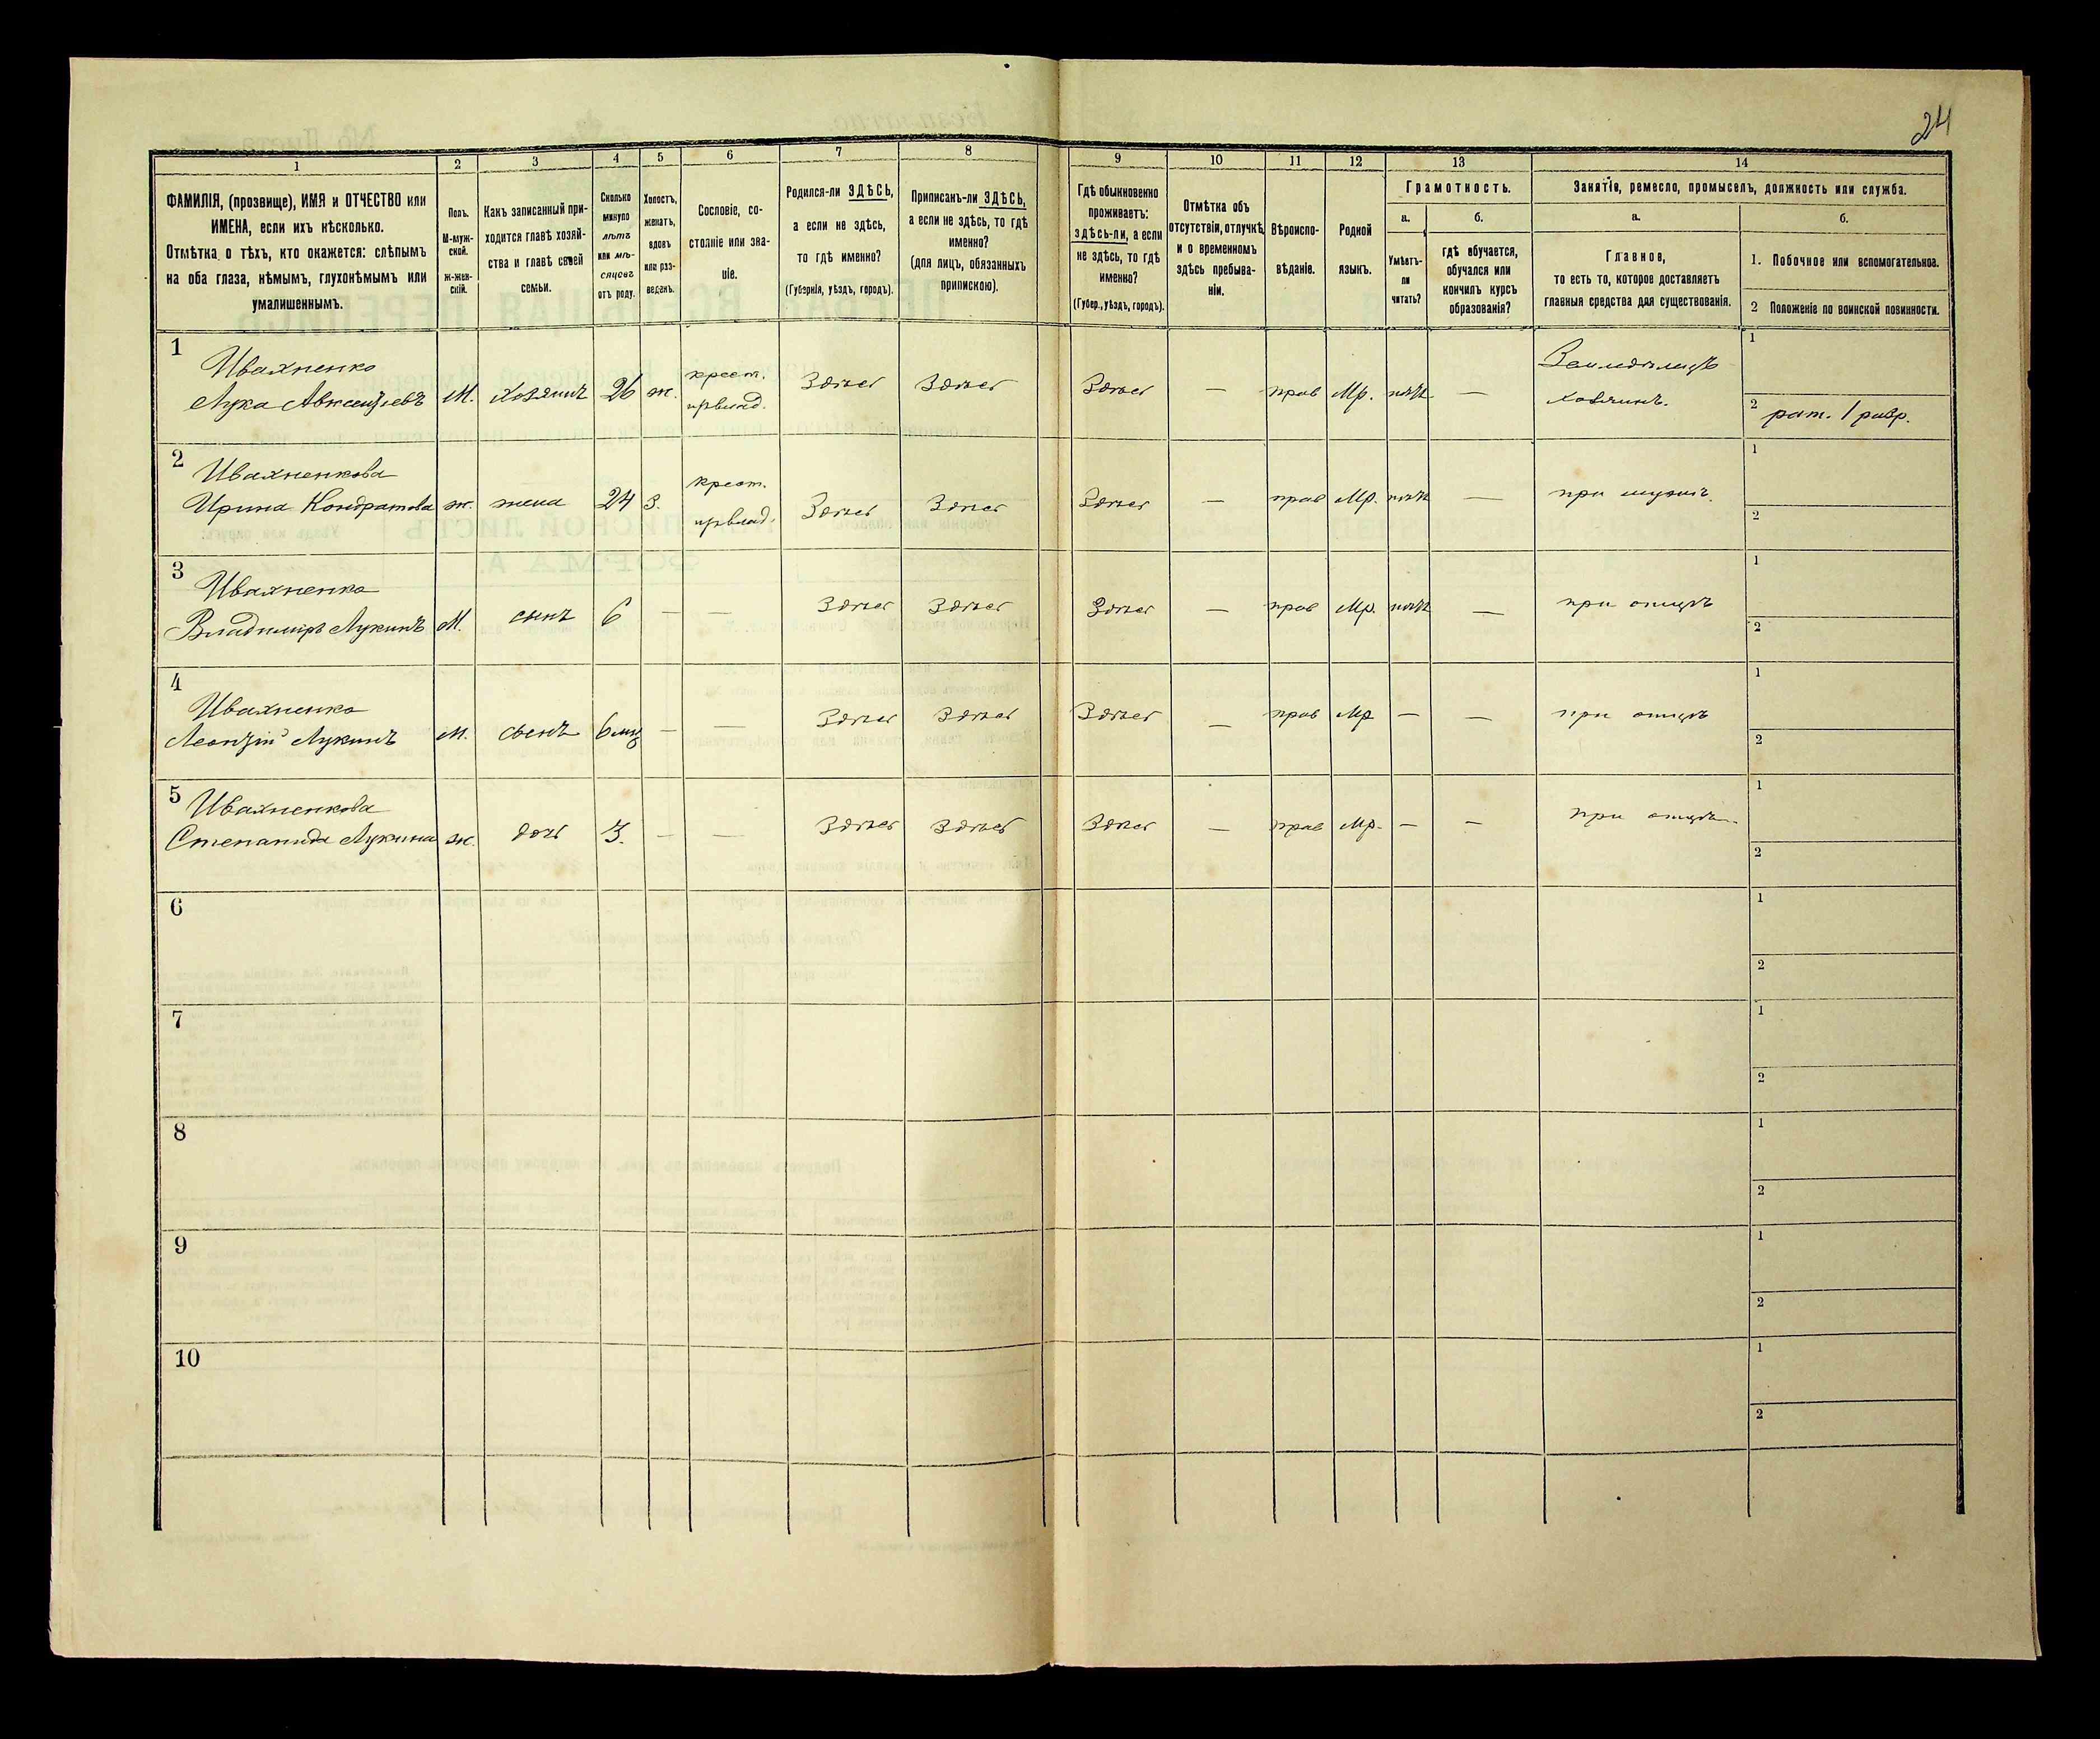 24
1 2 3 4 5 6 7 8 9 10 11 12 13 14
ФАМИЛІЯ, (прозвище), ИМЯ и ОТЧЕСТВО или
ИМЕНА, если ихъ нѣсколько.
Отмѣтка о тѣхъ, кто окажется: слѣпымъ
на оба глаза, нѣмымъ, глухонѣмымъ или
умалишеннымъ.
Полъ.
М-муж-
ской.
Ж-жен-
скій.
Какъ записанный при-
ходится главѣ хозяй-
ства и главѣ своей
семьи.
Сколько
минуло
лѣтъ
или мѣ-
сяцевъ
отъ роду.
Холостъ,
женатъ,
вдовъ
или раз-
веденъ.
Сословіе, со-
стояніе или зва-
ніе.
Родился-ли ЗДѢСЬ,
а если не здѣсь,
то гдѣ именно?
(Губернія, уѣздъ, городъ).
Приписанъ-ли ЗДѢСЬ,
а если не здѣсь, то гдѣ
именно?
(для лицъ, обязанныхъ
припискою).
Гдѣ обыкновенно
проживаетъ:
здѣсь-ли, а если
не здѣсь, то гдѣ
именно?
(Губер., уѣздъ, городъ).
Отмѣтка объ
отсутствіи, отлучкѣ
и о временномъ
здѣсь пребыва-
ніи.
Вѣроиспо-
вѣданіе.
Родной
языкъ.
Грамотность.
а.
Умѣетъ-
ли
читать?
б.
гдѣ обучается,
обучался или
кончилъ курсъ
образованія?
Занятіе, ремесло, промыселъ, должность или служба.
а.
Главное,
то есть то, которое доставляетъ
главныя средства для существованія.
б.
1. Побочное или вспомогательное.
2 Положеніе по воинской повинности.
1
Ивахненко
Лука Авксентіевъ М. хозяинъ 26 ж. крест. Здѣсь Здѣсь Здѣсь — прав Мр. нѣтъ — Земледѣлецъ 1
хозяинъ. 2 рат. 1 разр.
2
Ивахненкова
Ирина Кондратова ж. жена 24 З. крест. Здѣсь Здѣсь Здѣсь — прав Мр. нѣтъ — при мужѣ. 1
2
3
Ивахненко
Владиміръ Лукинъ М. сынъ 6 — — Здѣсь Здѣсь Здѣсь — прав Мр. нѣтъ — при отцѣ 1
2
4
Ивахненко
Леонтій Лукинъ М. сынъ 6 мѣ — — Здѣсь Здѣсь Здѣсь — прав Мр — — при отцѣ 1
2
5
Ивахненкова
Степанида Лукина ж. дочь 3. — — Здѣсь Здѣсь Здѣсь — прав Мр. — — при отцѣ. 1
2
6 1
2
7 1
2
8 1
2
9 1
2
10 1
2